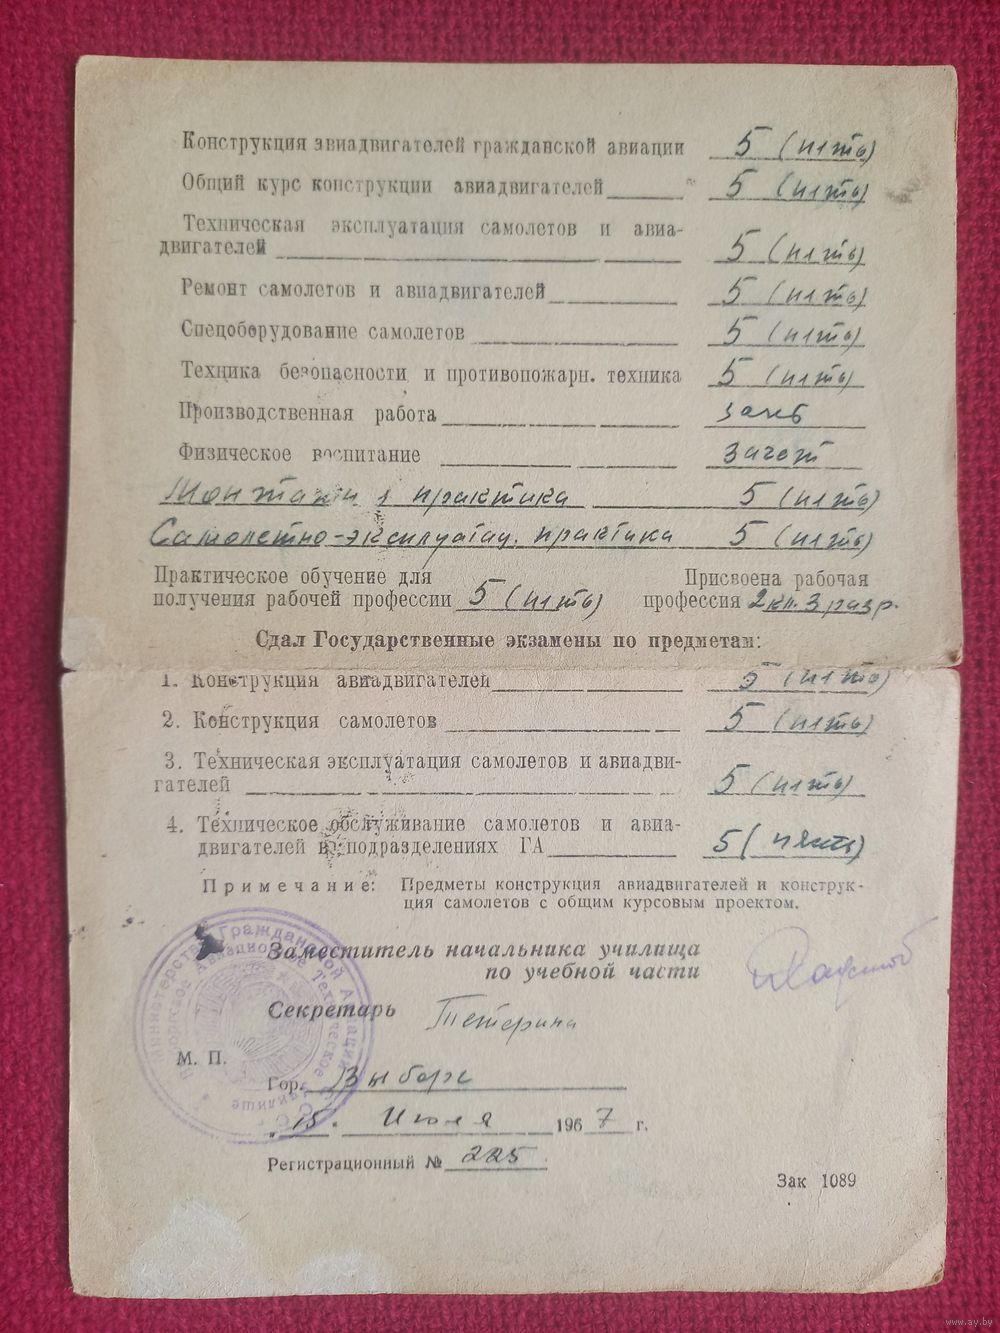 Конструкция авиадвигателей гражданской авиации 5 (пять)
Общий курс конструкции авиадвигателей 5 (пять)
Техническая эксплуатация самолетов и авиа-
двигателей 5 (пять)
Ремонт самолетов и авиадвигателей 5 (пять)
Спецоборудование самолетов 5 (пять)
Техника безопасности и противопожарн. техника 5 (пять)
Производственная работа зачет
Физическое воспитание зачет
Монтажная практика 5 (пять)
Самолетно-эксплуатац. практика 5 (пять)
Практическое обучение для Присвоена рабочая
получения рабочей профессии 5 (пять) профессия 2 кл. 3 разр.
Сдал Государственные экзамены по предметам:
1. Конструкция авиадвигателей 5 (пять)
2. Конструкция самолетов 5 (пять)
3. Техническая эксплуатация самолетов и авиадви-
гателей 5 (пять)
4. Техническое обслуживание самолетов и авиа-
двигателей в подразделениях ГА 5 (пять)
Примечание: Предметы конструкция авиадвигателей и конструк-
ция самолетов с общим курсовым проектом.
Заместитель начальника училища
по учебной части
Секретарь Тетерина
М. П.
Министерство Гражданской Авиации СССР
Выборгское Авиационное Техническое училище
Гор. Выборг
"15" Июля 1967 г.
Регистрационный № 225
Зак 1089
www.ay.by